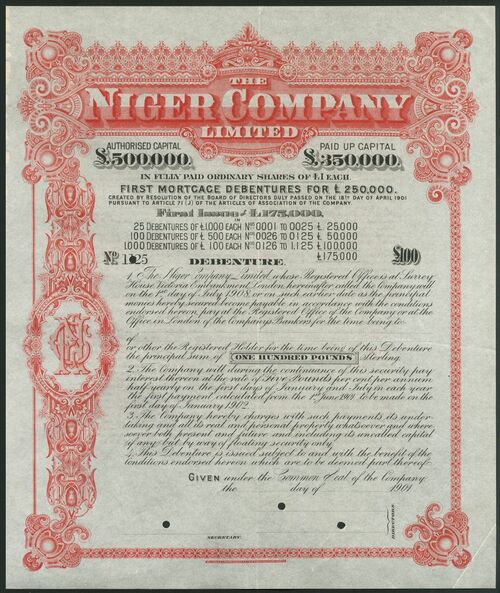 THE
NIGER COMPANY
LIMITED
AUTHORISED CAPITAL
£500,000.
PAID UP CAPITAL
£350,000.
IN FULLY PAID ORDINARY SHARES OF £1 EACH.
FIRST MORTGAGE DEBENTURES FOR £250,000.
CREATED BY RESOLUTION OF THE BOARD OF DIRECTORS DULY PASSED ON THE 18TH DAY OF APRIL 1901
PURSUANT TO ARTICLE 71 (J) OF THE ARTICLES OF ASSOCIATION OF THE COMPANY.
First Issue of £175,000.
IN
25 DEBENTURES OF £1,000 EACH Nos 0001 TO 0025 £ 25000
100 DEBENTURES OF £ 500 EACH Nos 0026 TO 0125 £ 50,000
1000 DEBENTURES OF £ 100 EACH Nos 0126 TO 1125 £100000
£175000
No 1125
DEBENTURE.
£100
1. The Niger Company Limited whose Registered Office is at Surrey
House Victoria Embankment London hereinafter called the Company will
on the 1st day of July 1908 or on such earlier date as the principal
moneys hereby secured become payable in accordance with the conditions
endorsed hereon pay at the Registered Office of the Company or at the
Office in London of the Company's Bankers for the time being to
of
or other the Registered Holder for the time being of this Debenture
the principal sum of ONE HUNDRED POUNDS Sterling.
2. The Company will during the continuance of this security pay
interest thereon at the rate of Five Pounds per cent per annum
half yearly on the first days of January and July in each year
the first payment calculated from the 1st June 1901 to be made on the
first day of January 1902.
3. The Company hereby charges with such payments its under-
taking and all its real and personal property whatsoever and where-
soever both present and future and including its uncalled capital
if any but by way of floating security only.
4. This Debenture is issued subject to and with the benefit of the
conditions endorsed hereon which are to be deemed part thereof.
GIVEN under the Common Seal of the Company
the day of 1901
SECRETARY.
DIRECTORS